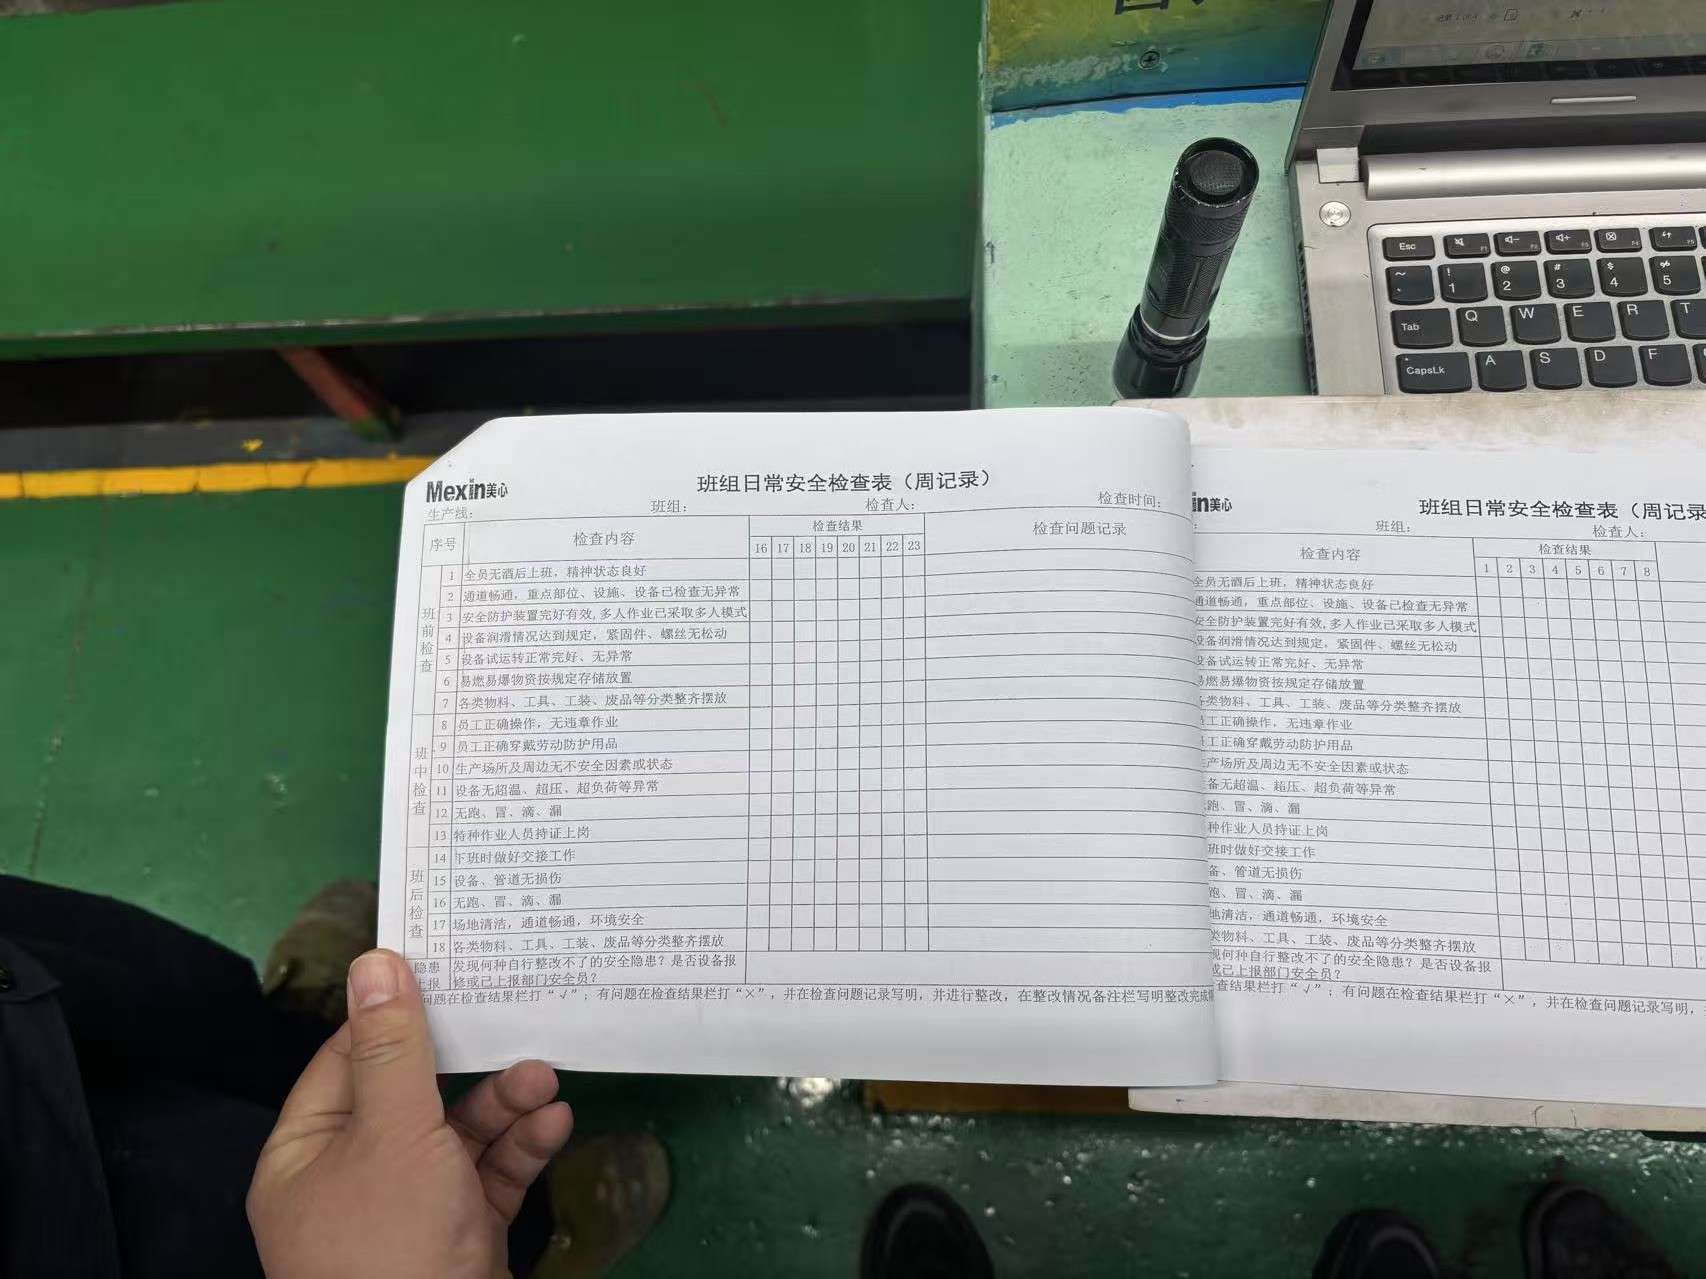 Mexin美心
班组日常安全检查表（周记录）
生产线：
班组：
检查人：
检查时间：
序号
检查内容
检查结果
检查问题记录
16 17 18 19 20 21 22 23
班前检查
1 全员无酒后上班，精神状态良好
2 通道畅通，重点部位、设施、设备已检查无异常
3 安全防护装置完好有效,多人作业已采取多人模式
4 设备润滑情况达到规定，紧固件、螺丝无松动
5 设备试运转正常完好、无异常
6 易燃易爆物资按规定存储放置
7 各类物料、工具、工装、废品等分类整齐摆放
班中检查
8 员工正确操作，无违章作业
9 员工正确穿戴劳动防护用品
10 生产场所及周边无不安全因素或状态
11 设备无超温、超压、超负荷等异常
12 无跑、冒、滴、漏
13 特种作业人员持证上岗
班后检查
14 下班时做好交接工作
15 设备、管道无损伤
16 无跑、冒、滴、漏
17 场地清洁，通道畅通，环境安全
18 各类物料、工具、工装、废品等分类整齐摆放
隐患上报
发现何种自行整改不了的安全隐患？是否设备报
修或已上报部门安全员？
问题在检查结果栏打“√”；有问题在检查结果栏打“×”，并在检查问题记录写明，并进行整改，在整改情况备注栏写明整改完成
in美心
班组日常安全检查表（周记录
班组：
检查人：
检查内容
检查结果
1 2 3 4 5 6 7 8
全员无酒后上班，精神状态良好
通道畅通，重点部位、设施、设备已检查无异常
安全防护装置完好有效,多人作业已采取多人模式
设备润滑情况达到规定，紧固件、螺丝无松动
设备试运转正常完好、无异常
易燃易爆物资按规定存储放置
各类物料、工具、工装、废品等分类整齐摆放
员工正确操作，无违章作业
员工正确穿戴劳动防护用品
生产场所及周边无不安全因素或状态
设备无超温、超压、超负荷等异常
跑、冒、滴、漏
种作业人员持证上岗
班时做好交接工作
备、管道无损伤
跑、冒、滴、漏
地清洁，通道畅通，环境安全
类物料、工具、工装、废品等分类整齐摆放
现何种自行整改不了的安全隐患？是否设备报
或已上报部门安全员？
查结果栏打“√”；有问题在检查结果栏打“×”，并在检查问题记录写明，
Esc F1 F2 F3 F4 F5
~ ` ! 1 @ 2 # 3 $ 4 % 5
Tab Q W E R T
CapsLk A S D F